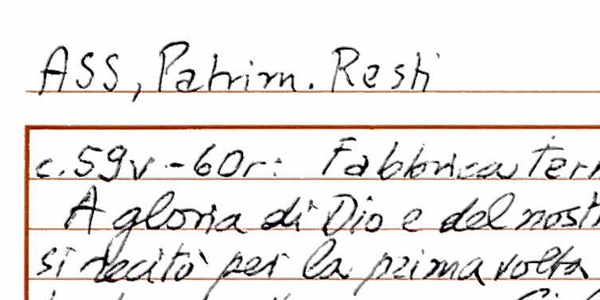 ASS, Patrim. Resti
c. 59v - 60r: Fabbrica
A gloria di Dio e del
si recitò per la prima volta